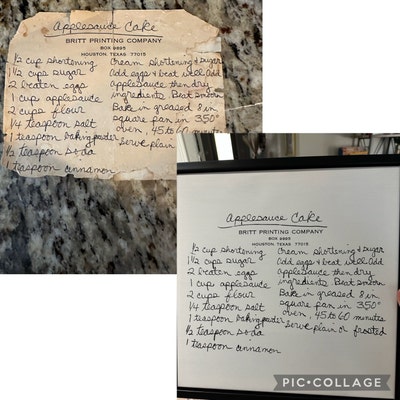 Applesauce Cake
BRITT PRINTING COMPANY
BOX 9895
HOUSTON, TEXAS 77015
1/2 cup shortening
1 1/2 cups sugar
2 beaten eggs
1 cup applesauce
2 cups flour
1/4 teaspoon salt
1 teaspoon baking powder
1/2 teaspoon soda
1 teaspoon cinnamon
Cream shortening & sugar
Add eggs & beat well Add
applesauce then dry
ingredients. Beat smooth
Bake in greased 8 in
square pan in 350°
oven, 45 to 60 minutes
Serve plain
Applesauce Cake
BRITT PRINTING COMPANY
BOX 9895
HOUSTON, TEXAS 77015
1/2 cup shortening
1 1/2 cups sugar
2 beaten eggs
1 cup applesauce
2 cups flour
1/4 teaspoon salt
1 teaspoon baking powder
1/2 teaspoon soda
1 teaspoon cinnamon
Cream shortening & sugar
Add eggs & beat well Add
applesauce then dry
ingredients. Beat smooth
Bake in greased 8 in
square pan in 350°
oven, 45 to 60 minutes
Serve plain or frosted
PIC•COLLAGE